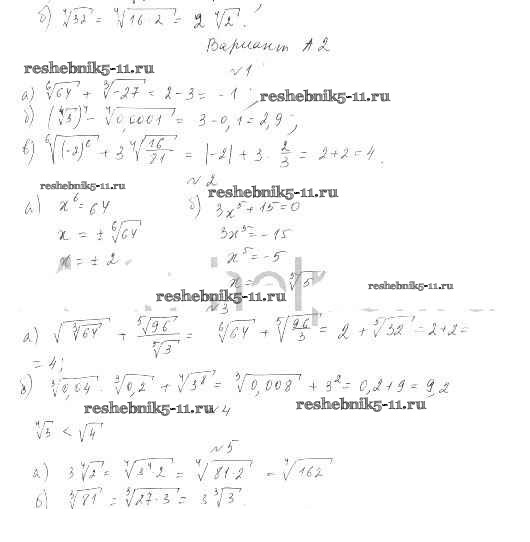 б) ⁴√32 = ⁴√16·2 = 2 ⁴√2.
Вариант А2
reshebnik5-11.ru
№1
а) ⁶√64 + ³√-27 = 2-3 = -1;
reshebnik5-11.ru
б) (⁴√3)⁴ - ⁴√0,0001 = 3-0,1 = 2,9;
в) ⁶√(-2)⁶ + 3 ⁴√16/81 = |-2| + 3 · 2/3 = 2+2 = 4.
reshebnik5-11.ru
№2
reshebnik5-11.ru
а) x⁶ = 64
б) 3x⁵ + 15 = 0
x = ± ⁶√64
3x⁵ = -15
x = ± 2.
x⁵ = -5
x = - ⁵√5
reshebnik5-11.ru
reshebnik5-11.ru
№3
а) √³√64 + ⁵√96/⁵√3 = ⁶√64 + ⁵√96/3 = 2 + ⁵√32 = 2+2 =
= 4;
б) ³√0,04 · ³√0,2 + ⁴√3⁸ = ³√0,008 + 3² = 0,2+9 = 9,2
reshebnik5-11.ru
№4
reshebnik5-11.ru
⁴√3 < √4
№5
а) 3 ⁴√2 = ⁴√3⁴·2 = ⁴√81·2 = ⁴√162
б) ³√81 = ³√27·3 = 3 ³√3.